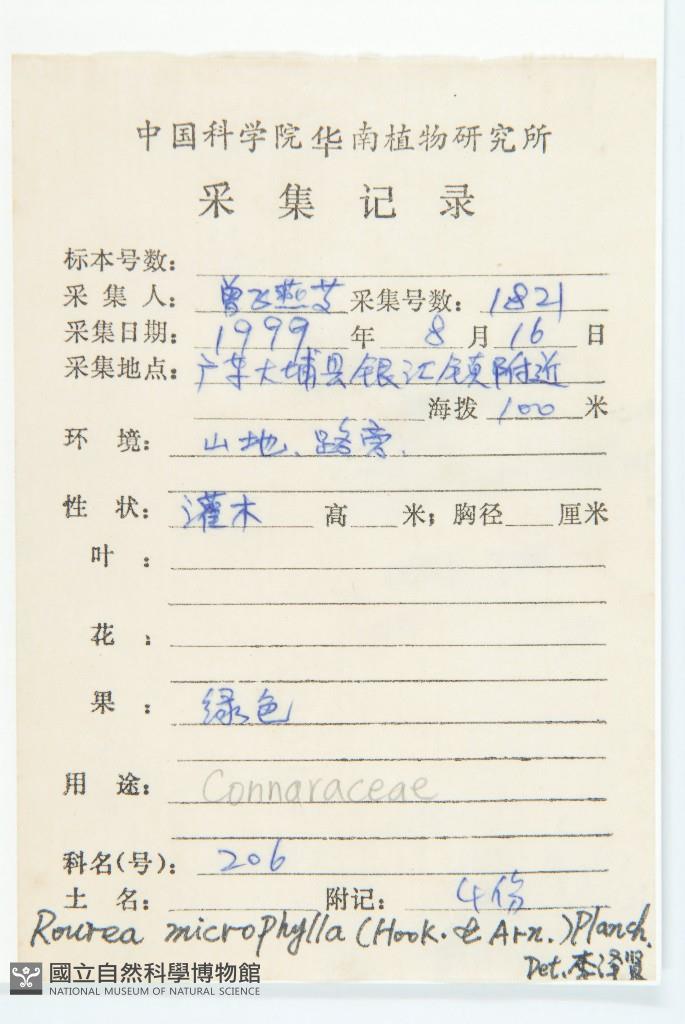 中国科学院华南植物研究所
采集记录
标本号数：
采集人：曾飞燕等 采集号数：1821
采集日期：1999年8月16日
采集地点：广东大埔县银江镇附近
海拨 100 米
环境：山地、路旁.
性状：灌木 高 米；胸径 厘米
叶：
花：
果：绿色
用途：Connaraceae
科名(号)：206
土名： 附记：4份
Rourea microphylla (Hook. & Arn.) Planch.
Det. 李泽贤
國立自然科學博物館
NATIONAL MUSEUM OF NATURAL SCIENCE